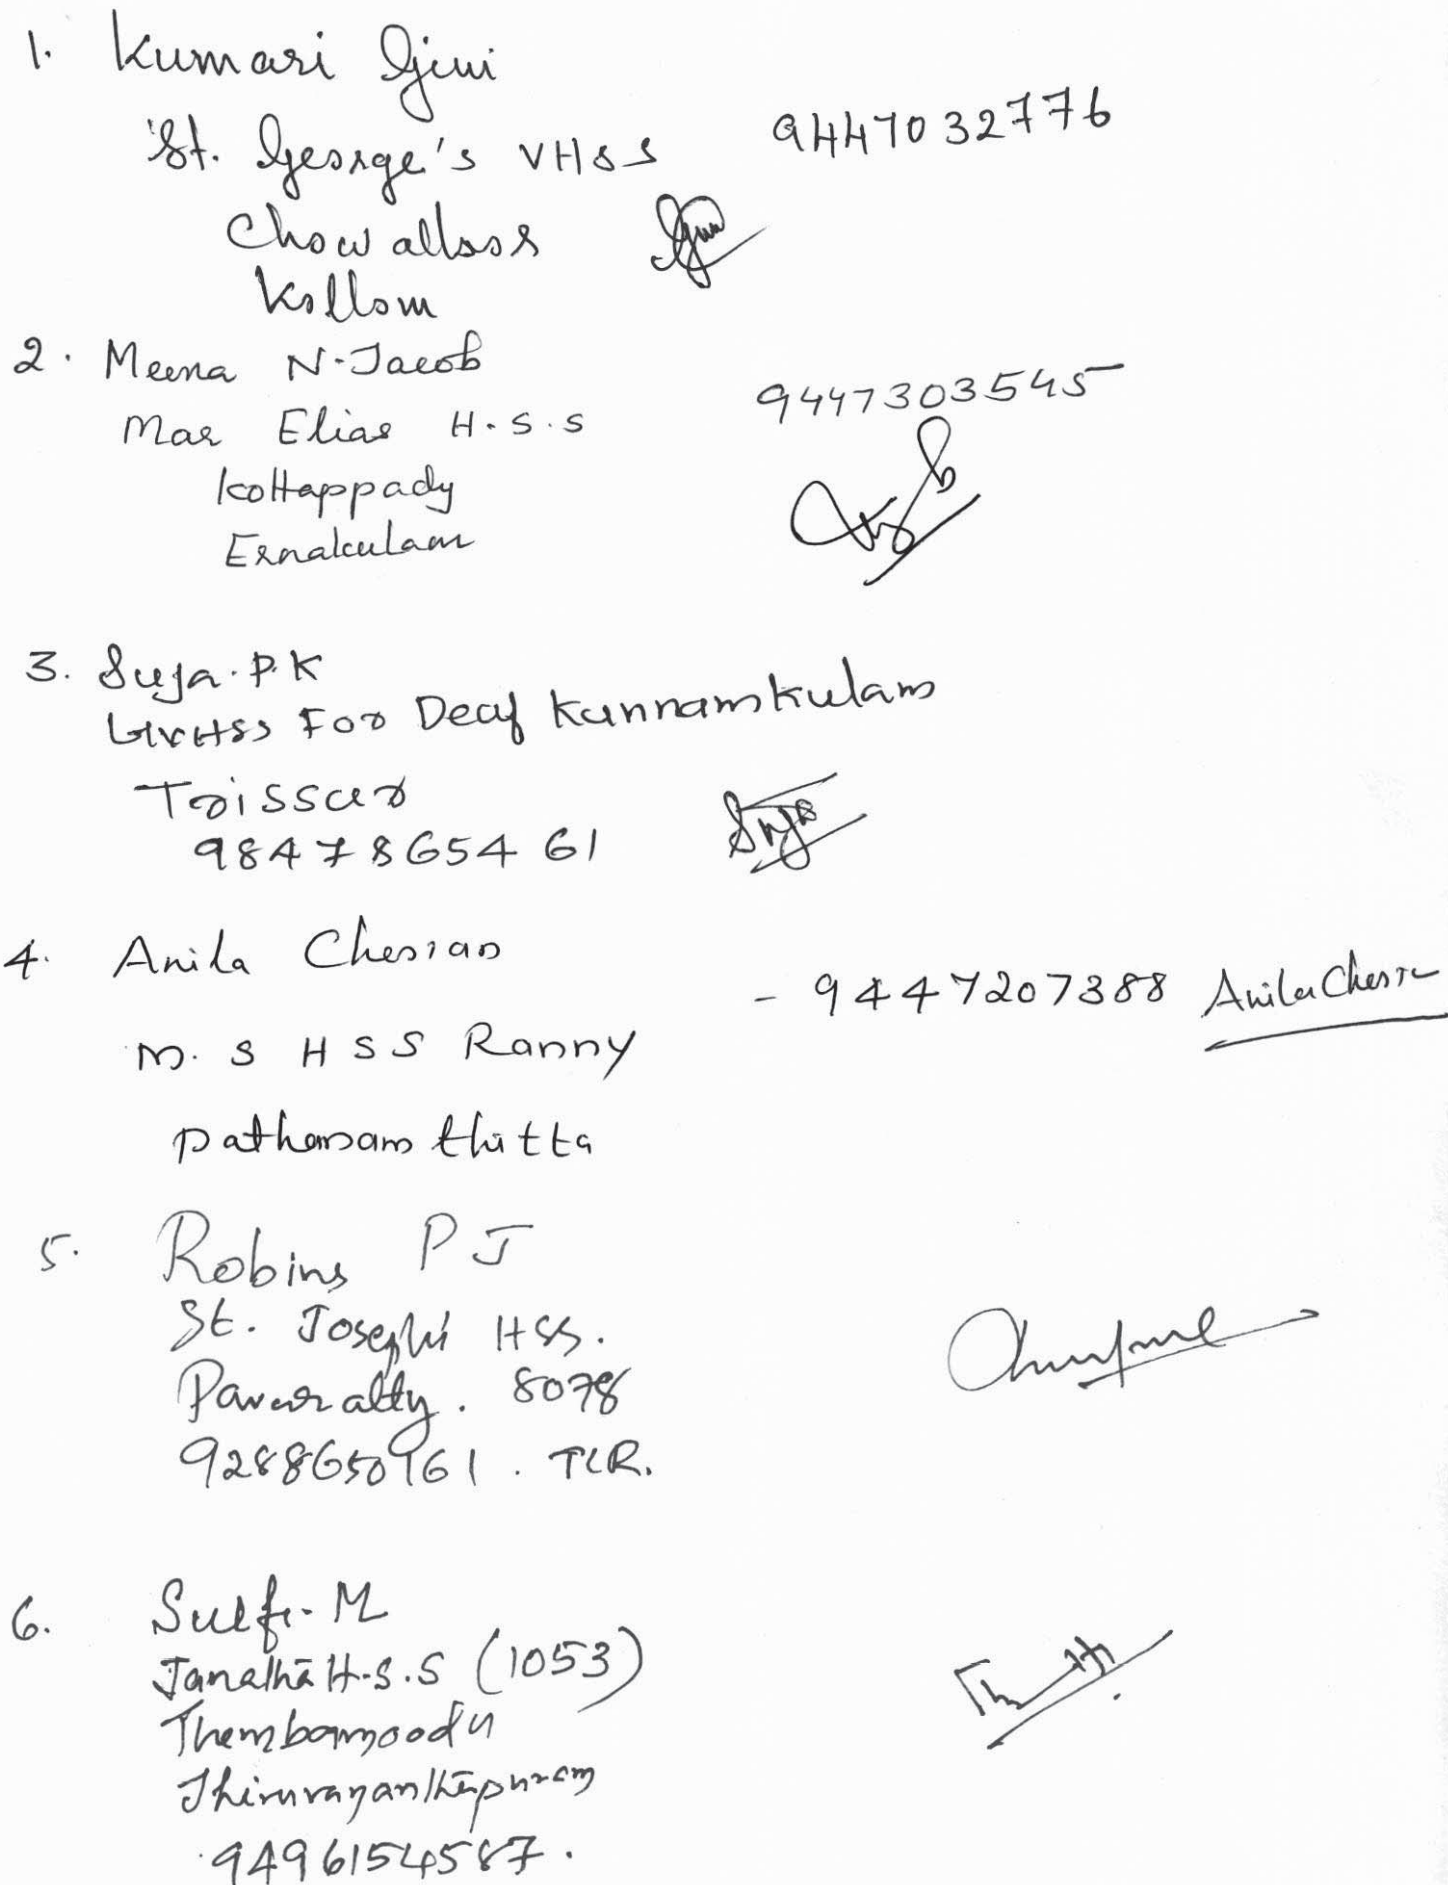 1. Kumari Gjini
St. George's VHSS 9447032776
Chowalloor
Kollam
2. Meena N. Jacob
Mar Elias H.S.S 9447303545
Kottappady
Ernakulam
3. Suja. P. K
GVHSS For Deaf Kunnamkulam
Trissur
9847865461 Suja
4. Anila Cherian
- 9447207388 Anila Cheria
M. S HSS Ranny
pathanam thitta
5. Robins P J
St. Joseph's HSS.
Pavaratty. 8078
9288650961. TCR.
6. Sulfi. M
Janatha H.S.S (1053)
Thembamoodu
Thiruvananthapuram
9496154587.